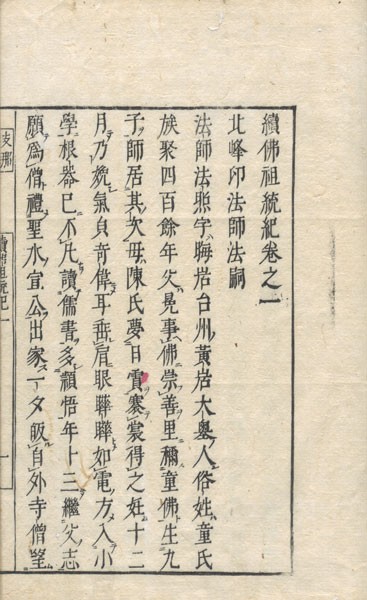 續佛祖統紀卷之一
北峰印法師法嗣
法師法照字晦岩台州黃岩大𡌴人俗姓童氏
族聚四百餘年父晃事佛崇善里稱童佛生九
子師居其次母陳氏夢日霣褰裳得之姙十二
月乃娩氣貞奇偉耳垂肩眼聯聯如電方入小
學根器已不凡讀儒書多穎悟年十三繼父志
願為僧禮聖水宜公出家一夕皈自外寺僧望
支那
續佛祖統紀一
一